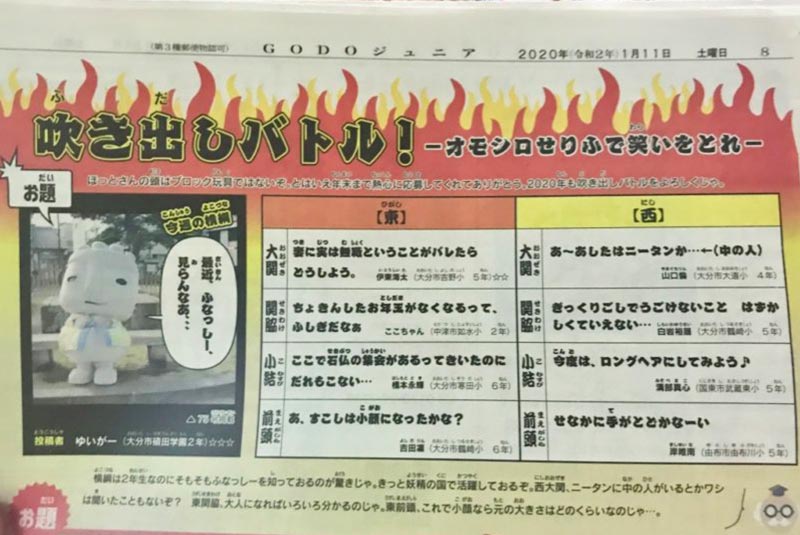 (第3種郵便物認可)
GODOジュニア
2020年(令和2年)1月11日 土曜日 8
吹き出しバトル!
-オモシロせりふで笑いをとれ-
お題
ほっとさんの頭はブロック玩具ではないぞ。とはいえ年末まで熱心に応募してくれてありがとう。2020年も吹き出しバトルをよろしくじゃ。
今週の横綱
最近、ふなっしー、
見らんなあ、、、
投稿者 ゆいがー (大分市碩田学園2年)☆☆☆
【東】
大関 妻に実は無職ということがバレたら
どうしよう。
伊東海太 (大分市吉野小 5年)☆☆
関脇 ちょきんしたお年玉がなくなるって、
ふしぎだなぁ
ここちゃん (中津市如水小 2年)
小結 ここで石仏の集会があるってきいたのに
だれもこない…
橋本永婦 (大分市寒田小 6年)
前頭 あ、すこしは小顔になったかな?
吉田凛 (大分市鶴崎小 6年)
【西】
大関 あ〜あしたはニータンか…←(中の人)
山口倫 (大分市大道小 4年)
関脇 ぎっくりごしでうごけないこと はずか
しくていえない…
白岩裕麗 (大分市鶴崎小 5年)
小結 今度は、ロングヘアにしてみよう♪
溝部真心 (国東市武蔵東小 5年)
前頭 せなかに手がとどかなーい
岸唯南 (由布市由布川小 5年)
横綱は2年生なのにそもそもふなっしーを知っておるのが驚きじゃ。きっと妖精の国で活躍しておるぞ。西大関、ニータンに中の人がいるとかワシ
は聞いたこともないぞ? 東関脇、大人になればいろいろ分かるのじゃ。東前頭、これで小顔なら元の大きさはどのくらいなのじゃ…。
お題